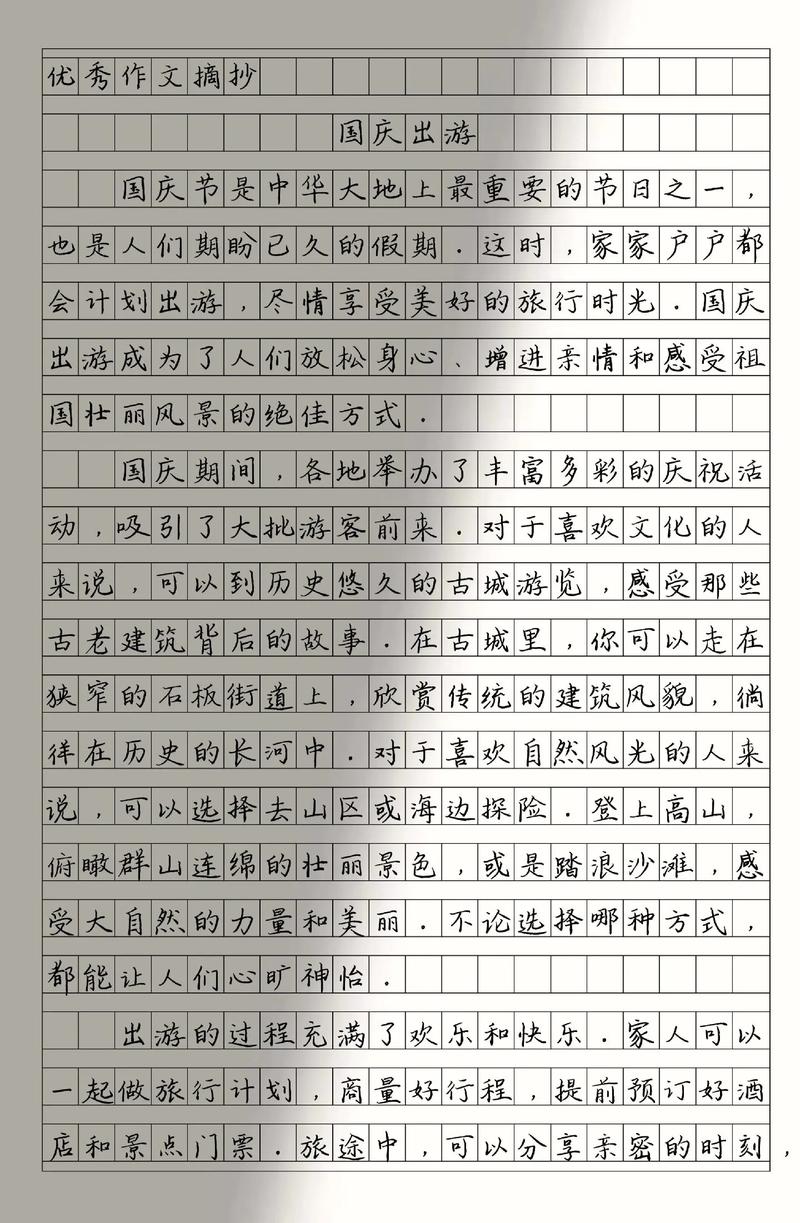 优秀作文摘抄
国庆出游
国庆节是中华大地上最重要的节日之一，
也是人们期盼已久的假期．这时，家家户户都
会计划出游，尽情享受美好的旅行时光．国庆
出游成为了人们放松身心、增进亲情和感受祖
国壮丽风景的绝佳方式．
国庆期间，各地举办了丰富多彩的庆祝活
动，吸引了大批游客前来．对于喜欢文化的人
来说，可以到历史悠久的古城游览，感受那些
古老建筑背后的故事．在古城里，你可以走在
狭窄的石板街道上，欣赏传统的建筑风貌，徜
徉在历史的长河中．对于喜欢自然风光的人来
说，可以选择去山区或海边探险．登上高山，
俯瞰群山连绵的壮丽景色，或是踏浪沙滩，感
受大自然的力量和美丽．不论选择哪种方式，
都能让人们心旷神怡．
出游的过程充满了欢乐和快乐．家人可以
一起做旅行计划，商量好行程，提前预订好酒
店和景点门票．旅途中，可以分享亲密的时刻，